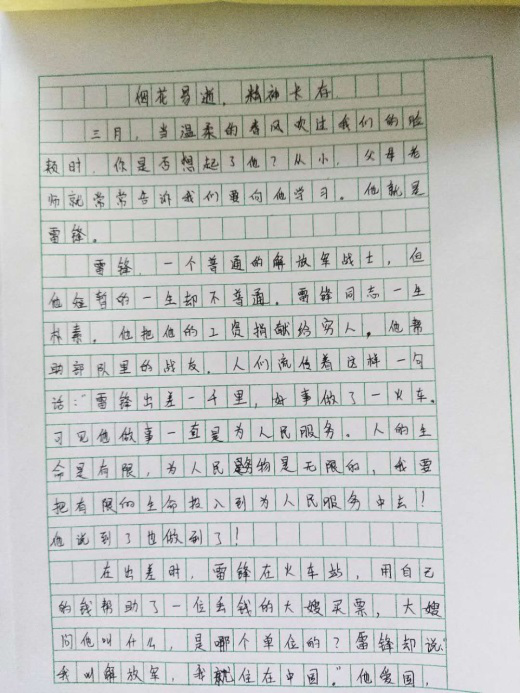 烟花易逝，精神长存
三月，当温柔的春风吹过我们的脸
颊时，你是否想起了他？从小，父母老
师就常常告诉我们要向他学习。他就是
雷锋。
雷锋，一个普通的解放军战士，但
他短暂的一生却不普通。雷锋同志一生
朴素，他把他的工资捐献给穷人，他帮
助部队里的战友，人们流传着这样一句
话：“雷锋出差一千里，好事做了一火车。
可见他做事一直是为人民服务。人的生
命是有限，为人民务是无限的，我要
把有限的生命投入到为人民服务中去！
他说到了也做到了！
在出差时，雷锋在火车站，用自己
的钱帮助了一位丢钱的大嫂买票，大嫂
问他叫什么，是哪个单位的？雷锋却说：“
我叫解放军，我就住在中国。”他爱国，